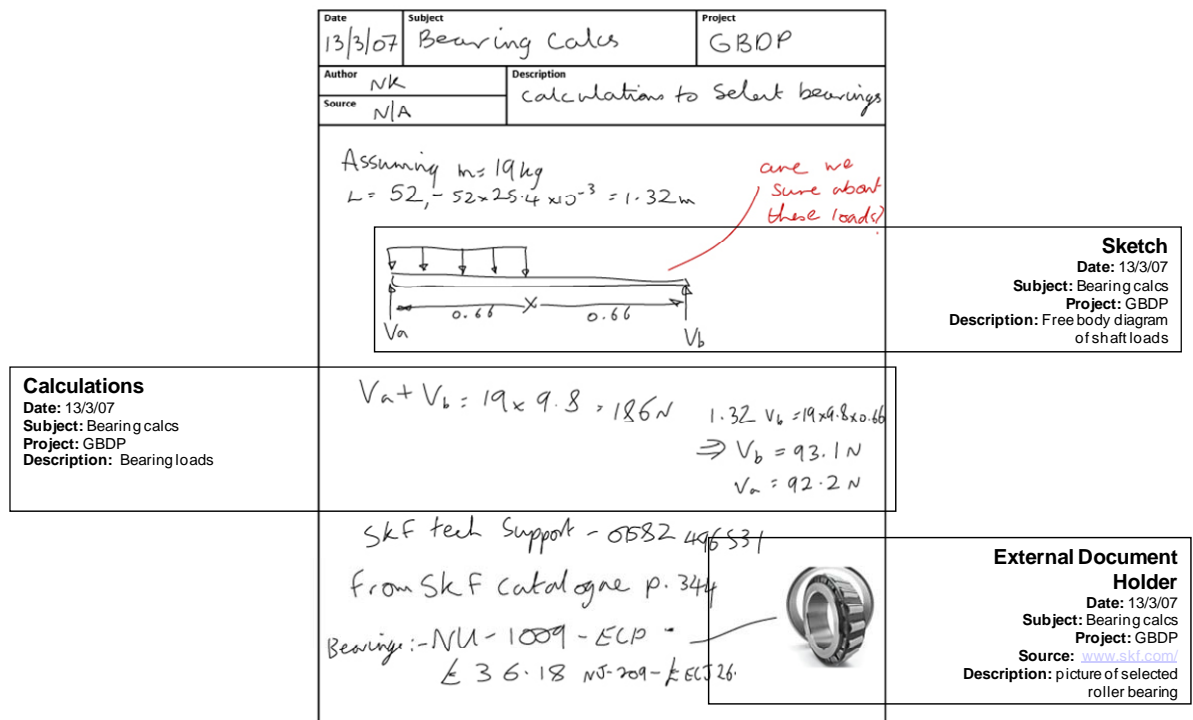 Date
13/3/07
Subject
Bearing Calcs
Project
GBDP
Author
NK
Description
Calculations to Select bearings
Source
N/A
Assuming m= 19kg
L= 52,- 52×25.4 ×10⁻³ = 1.32m
are we
sure about
these loads?
0.66
0.66
Va
Vb
Sketch
Date: 13/3/07
Subject: Bearing calcs
Project: GBDP
Description: Free body diagram
of shaft loads
Calculations
Date: 13/3/07
Subject: Bearing calcs
Project: GBDP
Description: Bearing loads
Va + Vb = 19 × 9.8 = 186N
1.32 Vb = 19×9.8×0.66
⇒ Vb = 93.1N
Va = 92.2 N
SKF tech Support - 496531
from SKF catalogue p. 344
Bearings:- NU - 1009 - ECP
£ 36.18 NJ-209-£ ECJ 26.
External Document
Holder
Date: 13/3/07
Subject: Bearing calcs
Project: GBDP
Source: www.skf.com/
Description: picture of selected
roller bearing